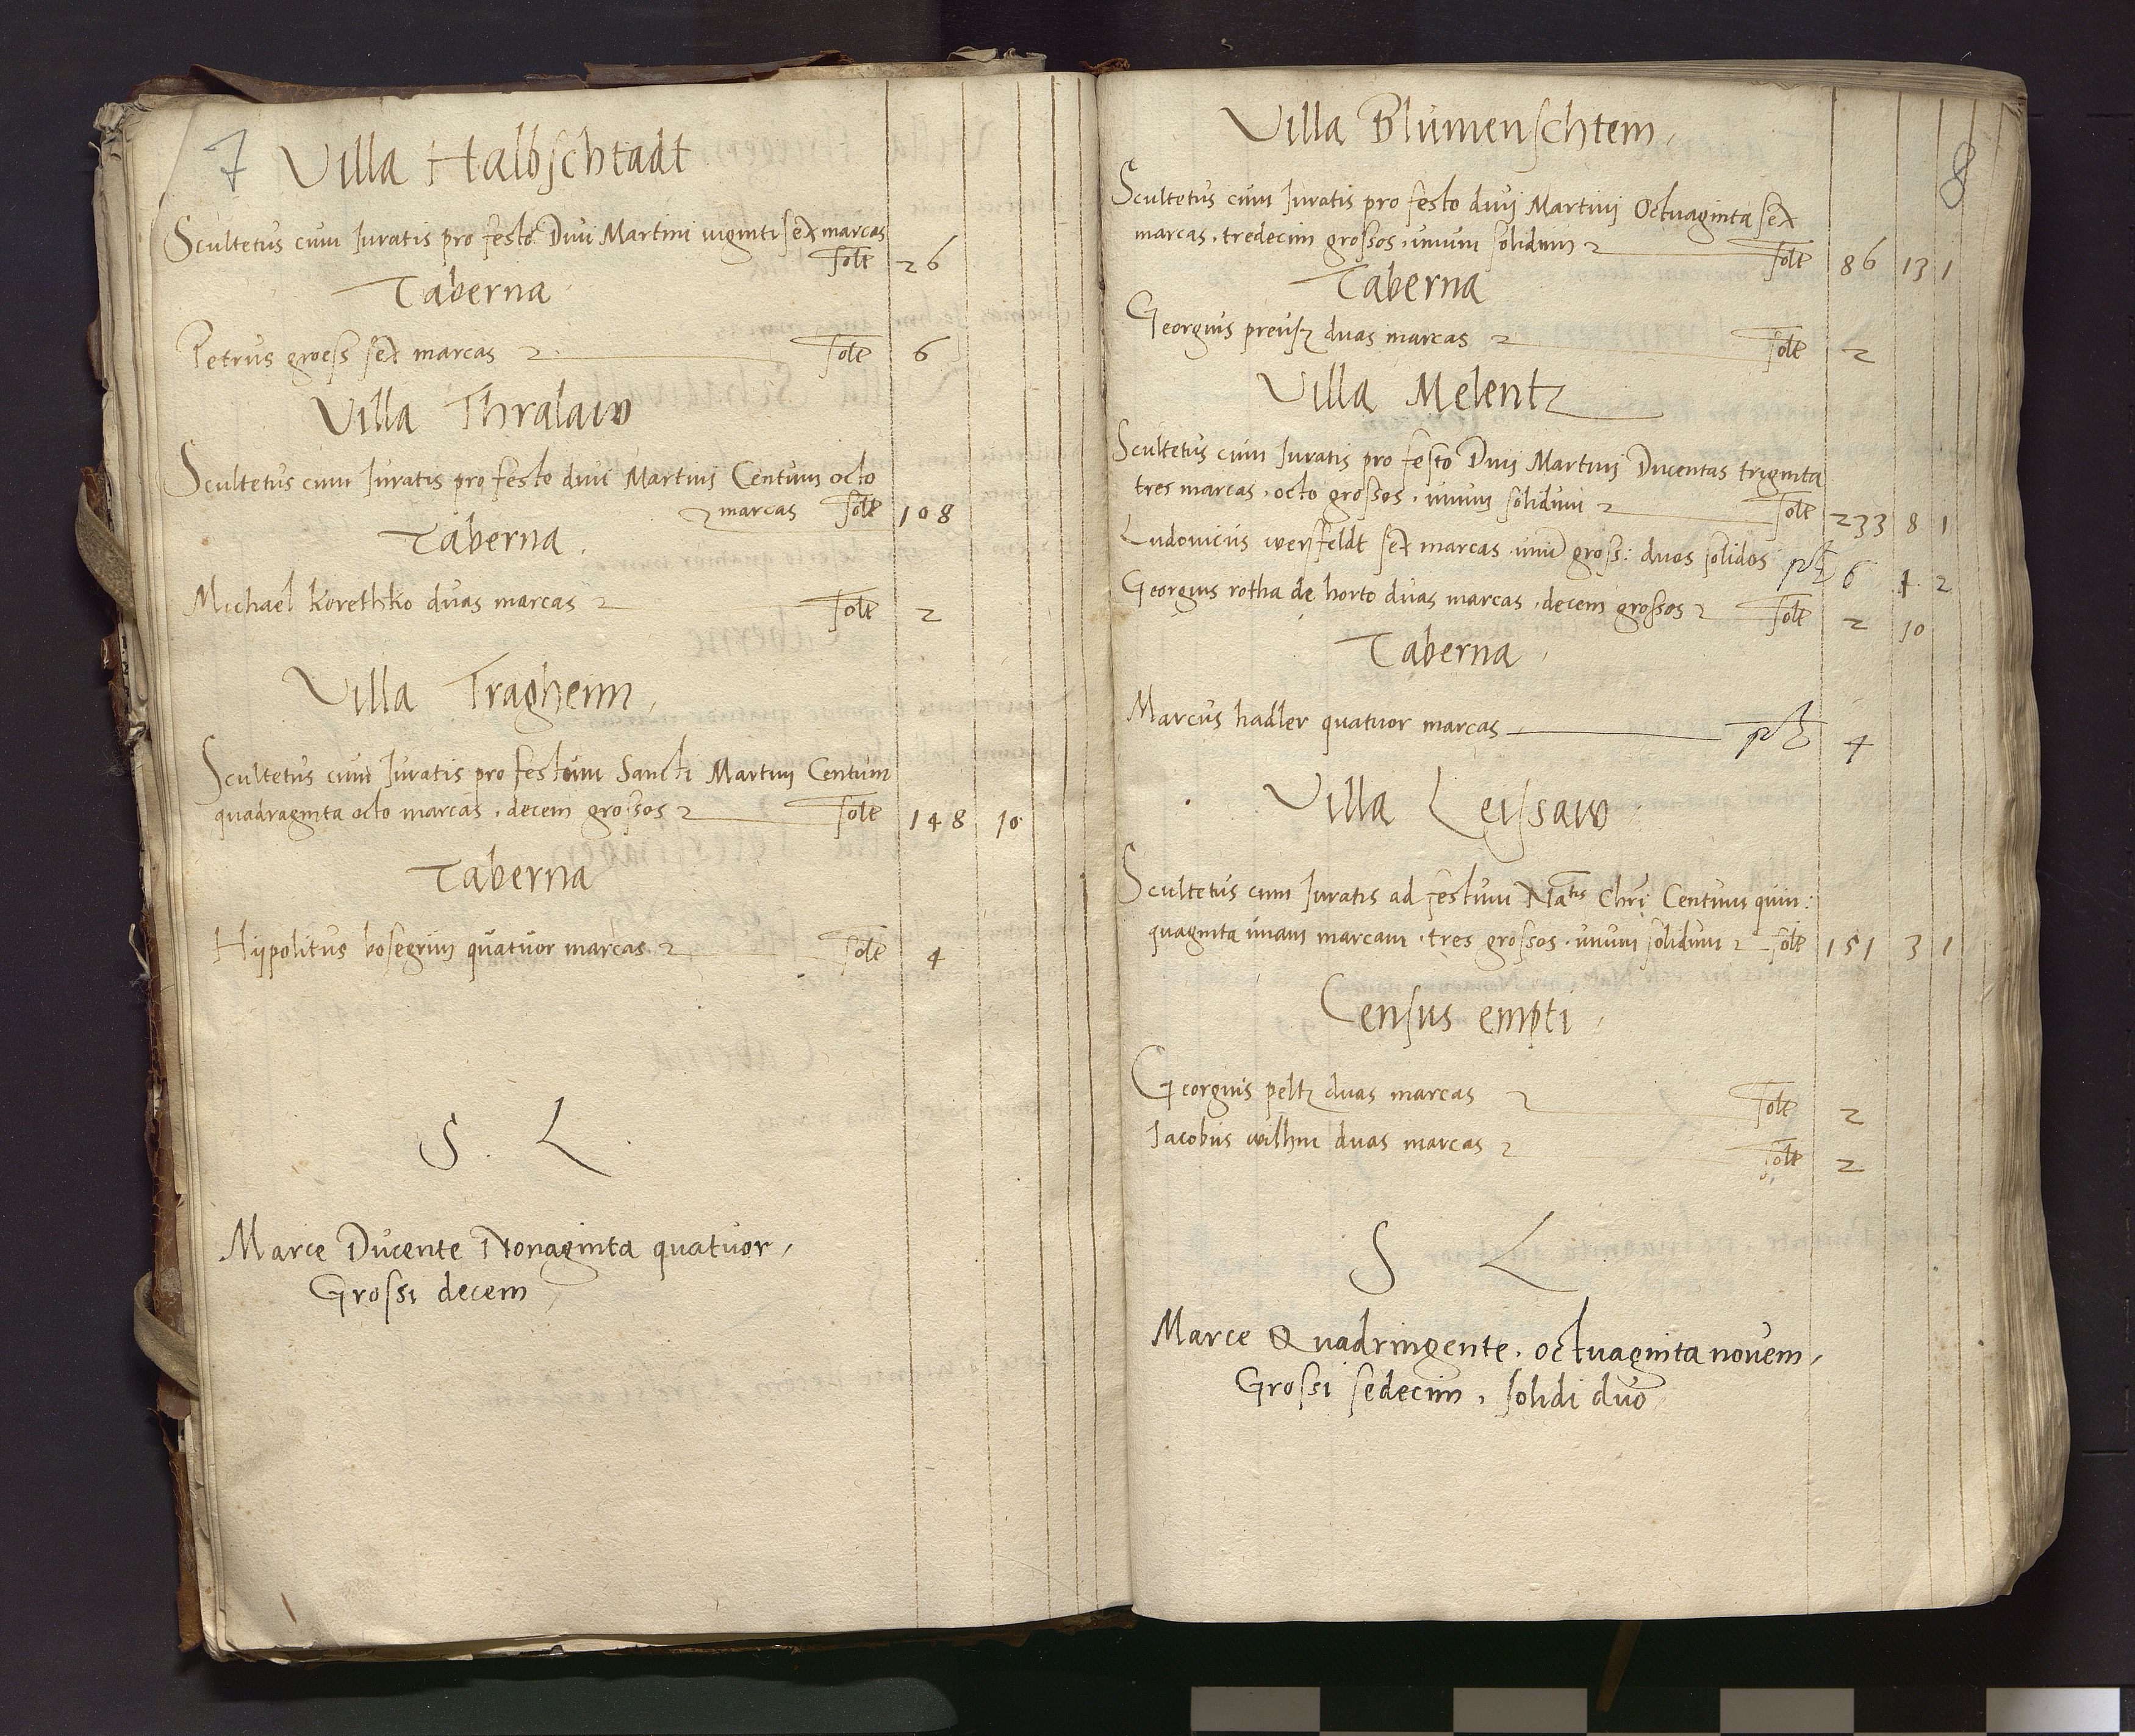 7
Villa Halbschtadt
Scultetus cum Iuratis pro festo Divi Martini viginti sex marcas
solt 26
Taberna
Petrus groess sex marcas solt 6
Villa Thralaw
Scultetus cum Iuratis pro festo divi Martini Centum octo
marcas solt 108
Taberna
Michael korethko duas marcas solt 2
Villa Tragheim
Scultetus cum Iuratis pro festum Sancti Martini Centum
quadraginta octo marcas. decem grossos solt 148 10
Taberna
Hippolitus bosegrim quatuor marcas solt 4
S. L
Marce Ducente Nonaginta quatuor,
Grossi decem
8
Villa Blumenschtein
Scultetus cum Iuratis pro festo divi Martini Octuaginta sex
marcas. tredecim grossos. unum solidum solt 86 13 1
Taberna
Georgius preusz duas marcas solt 2
Villa Melentz
Scultetus cum Iuratis pro festo Divi Martini Ducentas triginta
tres marcas. octo grossos. unum solidum solt 233 8 1
Ludovicus wersfeldt sex marcas unū gross: duos solidos 6 1 2
Georgius rotha de horto duas marcas. decem grossos solt 2 10
Taberna
Marcus hadler quatuor marcas 4
Villa Leissaw
Scultetus cum Iuratis ad festum Natis Chri Centum quin:
quaginta unam marcam. tres grossos. unum solidum solt 151 3 1
Census empti
Georgius peltz duas marcas solt 2
Iacobus wilhm duas marcas solt 2
S L
Marce Quadringente. octuaginta novem,
Grossi sedecim, solidi duo